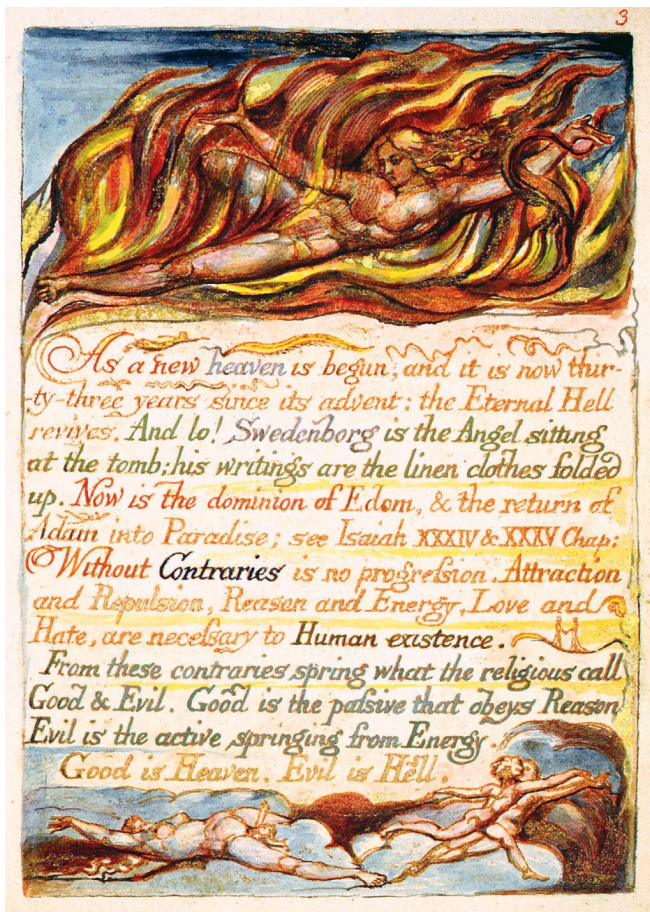 3
As a new heaven is begun, and it is now thir-
-ty-three years since its advent: the Eternal Hell
revives. And lo! Swedenborg is the Angel sitting
at the tomb; his writings are the linen clothes folded
up. Now is the dominion of Edom, & the return of
Adam into Paradise; see Isaiah XXXIV & XXXV Chap:
Without Contraries is no progreſsion. Attraction
and Repulsion, Reason and Energy, Love and
Hate, are neceſsary to Human existence.
From these contraries spring what the religious call
Good & Evil. Good is the paſsive that obeys Reason
Evil is the active springing from Energy.
Good is Heaven. Evil is Hell.